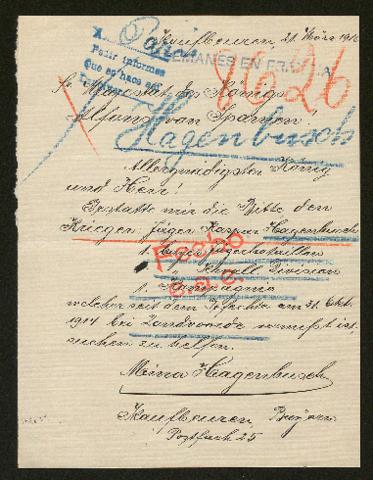 Kaufbeuren, 21. März 1916
X.
Pedir informes
Que se hace
ALEMANES EN FRANCIA
4626
Sr. Majestät des Königs
Alfons von Spanien!
Hagenbusch
Allergnädigster König
und Herr!
Gestatte mir die Bitte den
Krieger, Jäger Kaspar Hagenbusch
1. Jägerbataillon
Division
1. Kompanie
Fecho
welcher seit dem Gefechte am 31. Okt.
1914 bei Zandvoorde vermißt ist,
suchen zu helfen.
Mina Hagenbusch
Kaufbeuren Bayern
Postfach 25